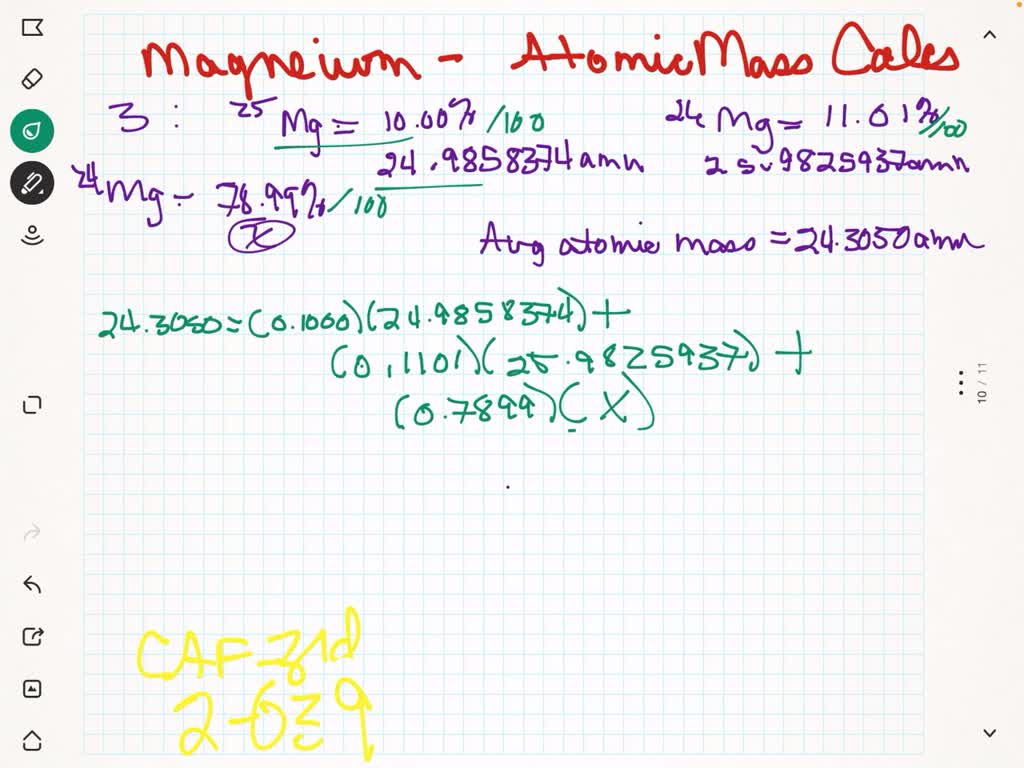 Magneium - Atomic Mass Calcs
3 : 25 Mg = 10.00% /100
24.9858374 amu
24 Mg = 11.01% /100
25.9825937 amu
24 Mg = 78.99% /100
X
Avg atomic mass = 24.3050 amu
24.3050 = (0.1000)(24.9858374) +
(0.1101)(25.9825937) +
(0.7899)(X)
10 / 11
CAF-3rd
2-039